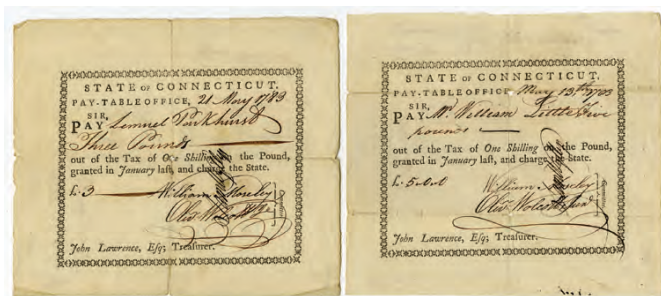 STATE OF CONNECTICUT.
PAY-TABLE OFFICE, 21 May 1783
SIR,
PAY Lemuel Parkhurst
Three Pounds
out of the Tax of One Shilling on the Pound,
granted in January last, and charge the State.
£. 3
William Moseley
Olivr Wolcott
John Lawrence, Esq; Treasurer.
STATE OF CONNECTICUT.
PAY-TABLE OFFICE, May 13th 1783
SIR,
PAY Mr William Little Five
pounds
out of the Tax of One Shilling on the Pound,
granted in January last, and charge the State.
£. 5
William Moseley
Olivr Wolcott
John Lawrence, Esq; Treasurer.